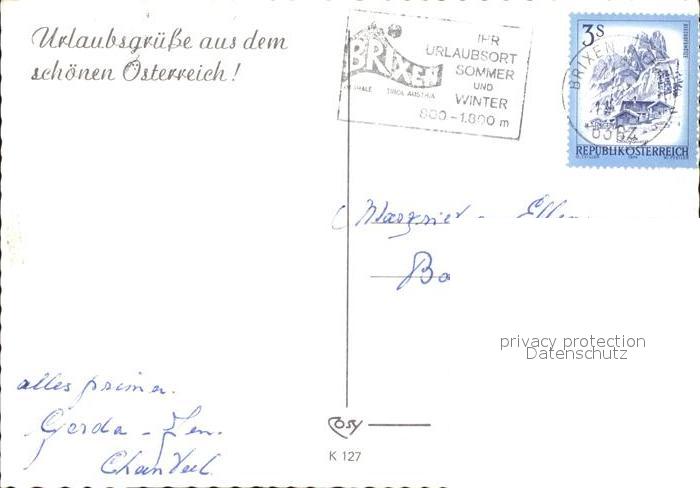 Urlaubsgrüße aus dem
schönen Österreich!
BRIXEN
TIROL AUSTRIA
IHR
URLAUBSORT
SOMMER
UND
WINTER
800-1.800 m
3s
BRIXEN
6364
REPUBLIK ÖSTERREICH
Margriet -
Bo
privacy protection
Datenschutz
alles prima.
Gerda -
Chantal
Cosy
K 127